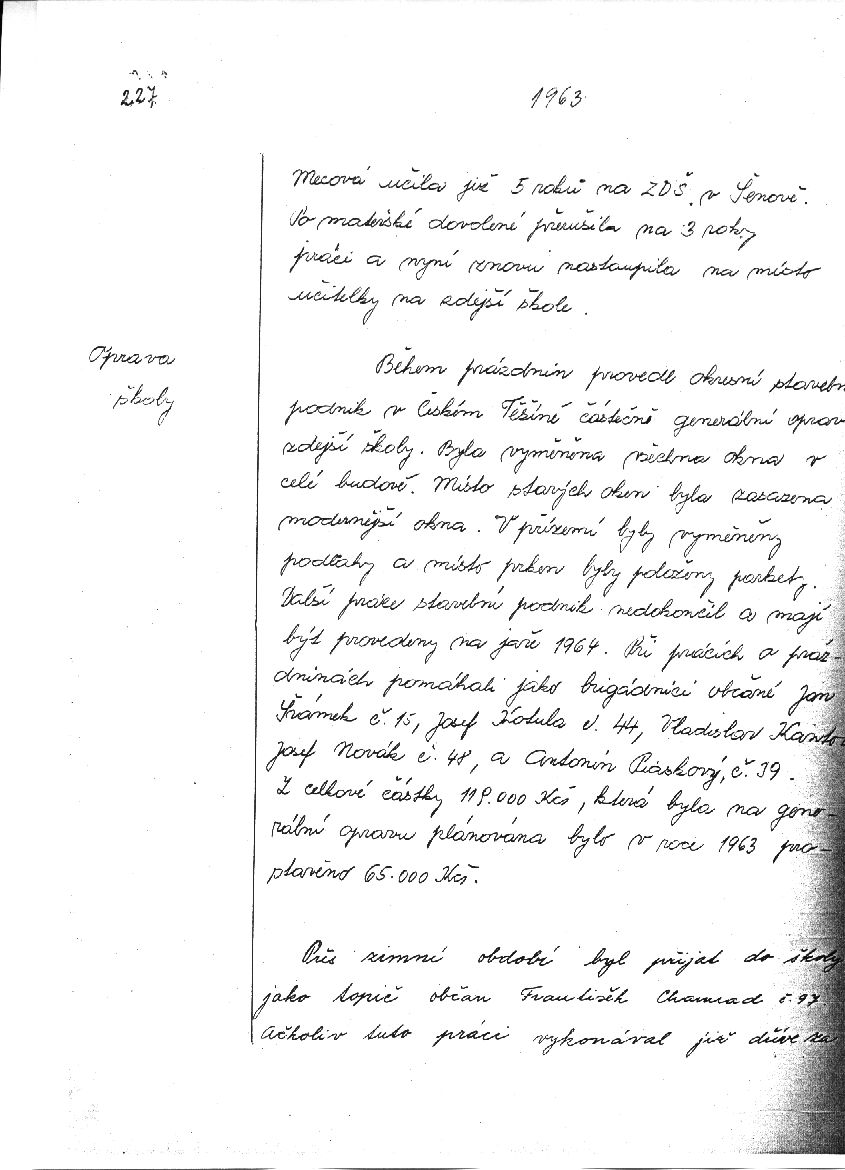 227
1963
Mecová učila již 5 roků na ZDŠ v Šenově.
Po mateřské dovolené přerušila na 3 roky
práci a nyní znovu nastoupila na místo
učitelky na zdejší škole.
Oprava
školy
Během prázdnin provedl okresní stavebn
podnik v Českém Těšíně částečně generální oprav
zdejší školy. Byla vyměněna všechna okna v
celé budově. Místo starých oken byla zasazena
modernější okna. V přízemí byly vyměněny
podlahy a místo prken byly položeny parkety.
Další práce stavební podnik nedokončil a mají
být provedeny na jaře 1964. Při pracích o práz-
dninách pomáhali jako brigádníci občané Jan
Šrámek č. 15, Josef Kotula č. 44, Vladislav Kanto
Josef Novák č. 48, a Antonín Piaskový, č. 39.
Z celkové částky 119.000 Kčs, která byla na gene-
rální opravu plánována bylo v roce 1963 pro-
stavěno 65.000 Kčs.
Přes zimní období byl přijat do školy
jako topič občan František Chamrad č. 97
Ačkoliv tuto práci vykonával již dříve za